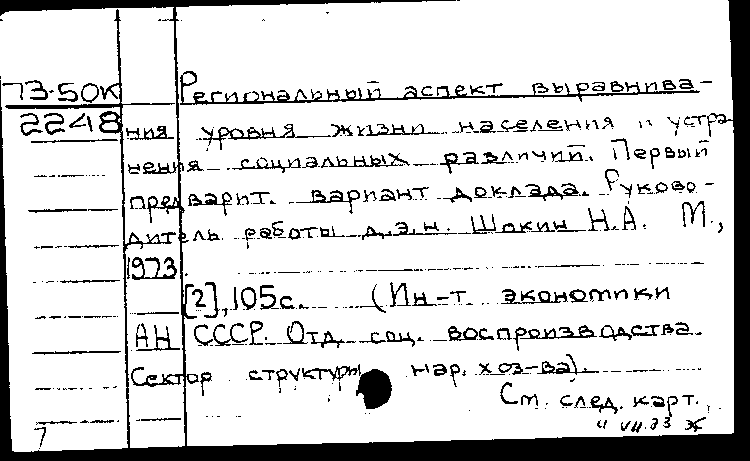 73-50К Региональный аспект выравнива-
2248 ния уровня жизни населения и устра-
нения социальных различий. Первый
предварит. вариант доклада. Руково-
дитель работы д.э.н. Шокин Н.А. М.,
1973.
[2], 105с. (Ин-т экономики
АН СССР. Отд. соц. воспроизводства.
Сектор структуры нар. хоз-ва).
См. след. карт.
7